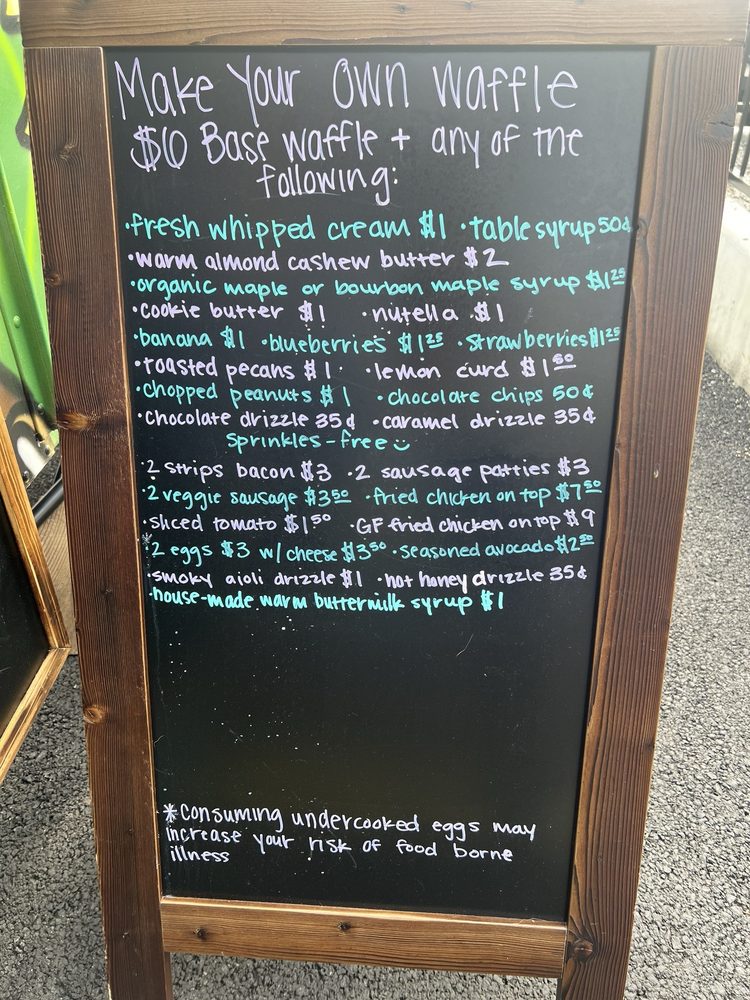 Make Your Own Waffle
$6 Base waffle + any of the
following:
·fresh whipped cream $1 ·table syrup 50¢
·warm almond cashew butter $2
·organic maple or bourbon maple syrup $1²⁵
·cookie butter $1 ·nutella $1
·banana $1 ·blueberries $1²⁵ ·strawberries $1²⁵
·toasted pecans $1 ·lemon curd $1⁵⁰
·chopped peanuts $1 ·chocolate chips 50¢
·chocolate drizzle 35¢ ·caramel drizzle 35¢
sprinkles-free :)
·2 strips bacon $3 ·2 sausage patties $3
·2 veggie sausage $3⁵⁰ ·fried chicken on top $7⁵⁰
·sliced tomato $1⁵⁰ ·GF fried chicken on top $9
*·2 eggs $3 w/cheese $3⁵⁰ ·seasoned avocado $2⁵⁰
·smoky aioli drizzle $1 ·hot honey drizzle 35¢
·house-made warm buttermilk syrup $1
*Consuming undercooked eggs may
increase your risk of food borne
illness